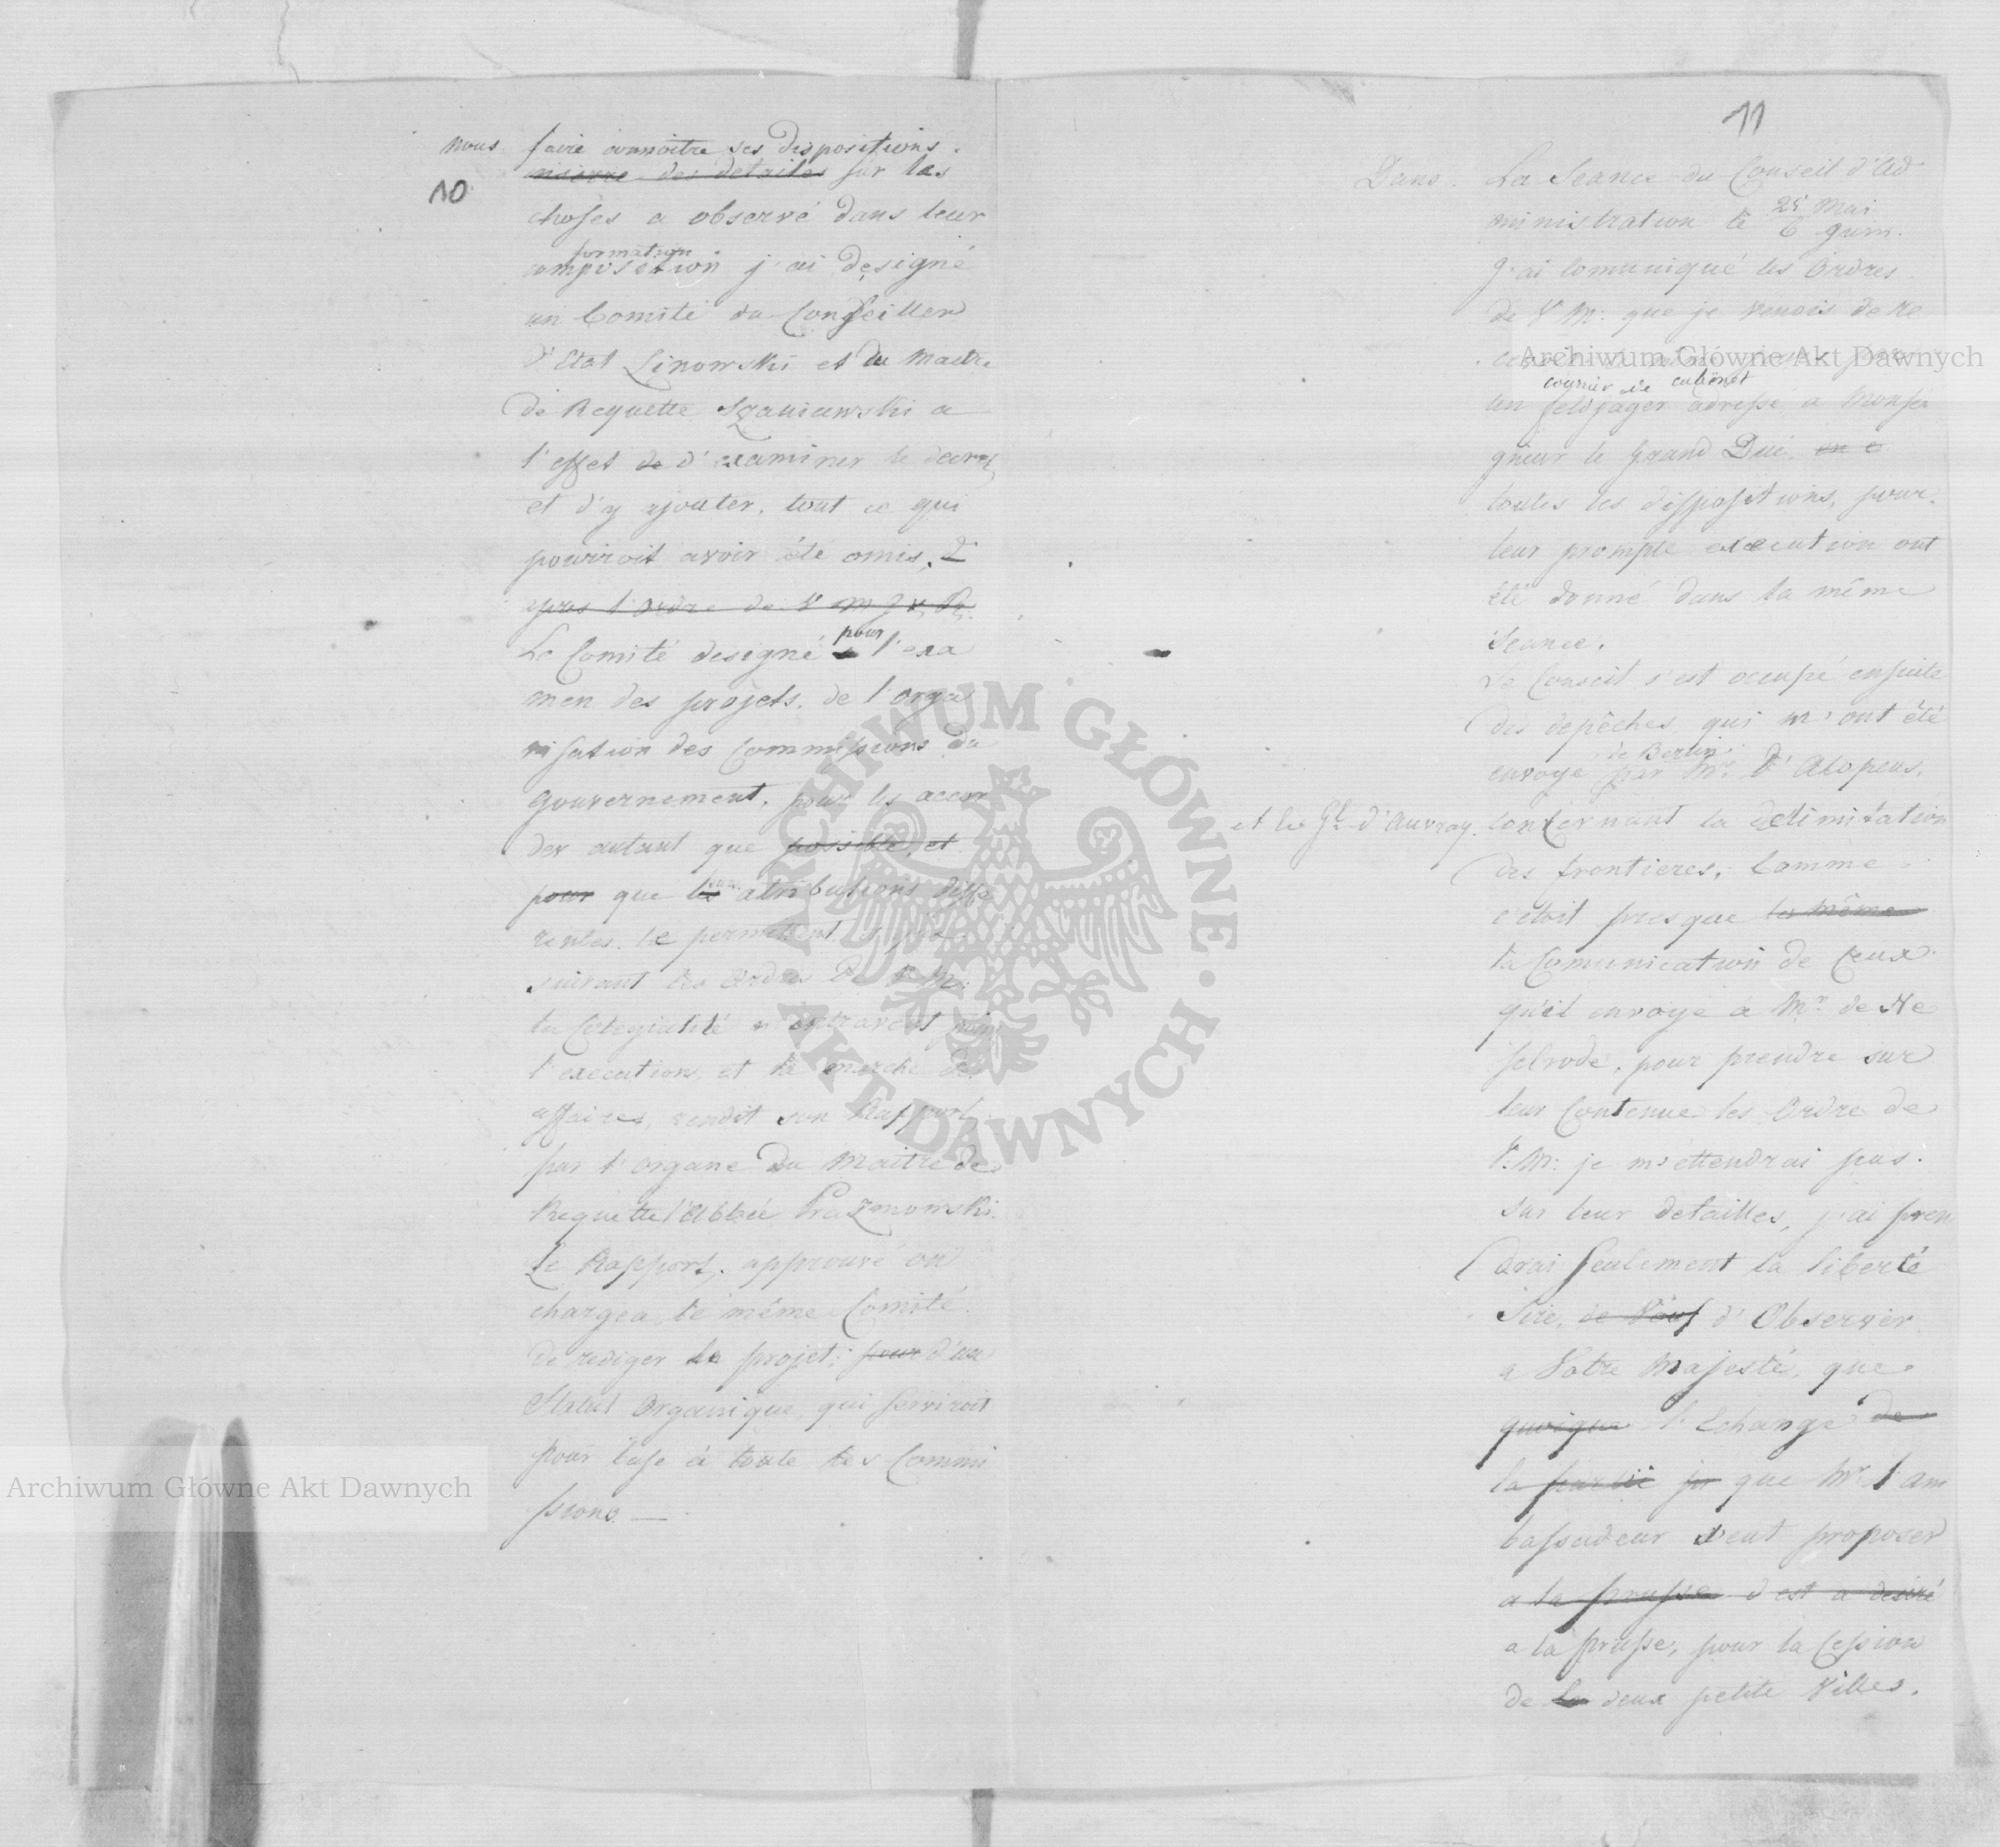 10
nous faire connoitre ses dispositions.
des details sur les
choses a observé dans leur
formation
composition j'ai designé
un Comité du Conseiller
d'Etat Linowski et du Maitre
de Requette Szaniawski a
l'effet de d'examiner le decret
et d'y ajouter, tout ce qui
pourroit avoir été omis. D
apres l'Ordre de V M
pour
Le Comité designé l'exa
men des projets, de l'orga
nisation des Commissions du
Gouvernement, pour les accor
der autant que possible, et
pour que attributions diffe
rentes le permettent
suivant les Ordres de V. M.
la Colegialité n'entravent
l'execution, et la marche des
affaires, rendit son Rapport
par l'organe du Maitre de
Requette l'Abbé Prazmowski.
Le Rapport, approuvé on
chargea, le même Comité
de rediger le projet, pour d'un
Statut Organique, qui serviroit
pour base à toute les Commi
ssions —
11
Dans La Seance du Conseil d'Ad
25 Mai
ministration le 6 Juin.
J'ai comuniqué les Ordres
de V. M. que je venois de re
courier de cabinet
un feldjäger adressé a Monsei
gneur le Grand Duc, en c
toutes les dispositions, pour
leur prompte execution ont
été donné dans la même
Seance.
Le Conseil s'est occupé ensuite
des depêches, qui m'ont été
de Berlin
envoyé par Mr. d'Alopeus,
et le Gl. d'Auvray. concernant la delimitation
des frontieres, Comme
c'etoit presque les même
la Comunication de Ceux
qu'il envoye à Mr. de Ne
selrode, pour prendre sur
leur Contenue les Ordre de
V. M. je m'ettendrai pas
sur leur detailles, j'ai pren
drai seulement la liberté
Sire, de Vous d'Observer
a Votre Majesté, que
quoique l'Echange de
la que Mr. l'am
bassadeur veut proposer
a la prusse est a desiré
a la prusse, pour la Cession
de deux petite Villes.
Archiwum Główne Akt Dawnych
Archiwum Główne Akt Dawnych
ARCHIWUM GŁÓWNE AKT DAWNYCH